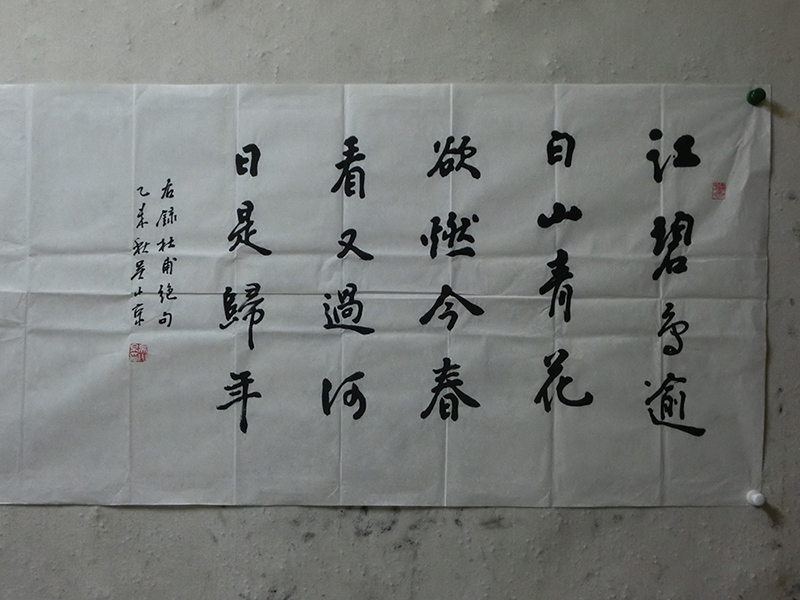 江碧鸟逾
白山青花
欲燃今春
看又過何
日是歸年
右録杜甫絶句
乙未秋吴京